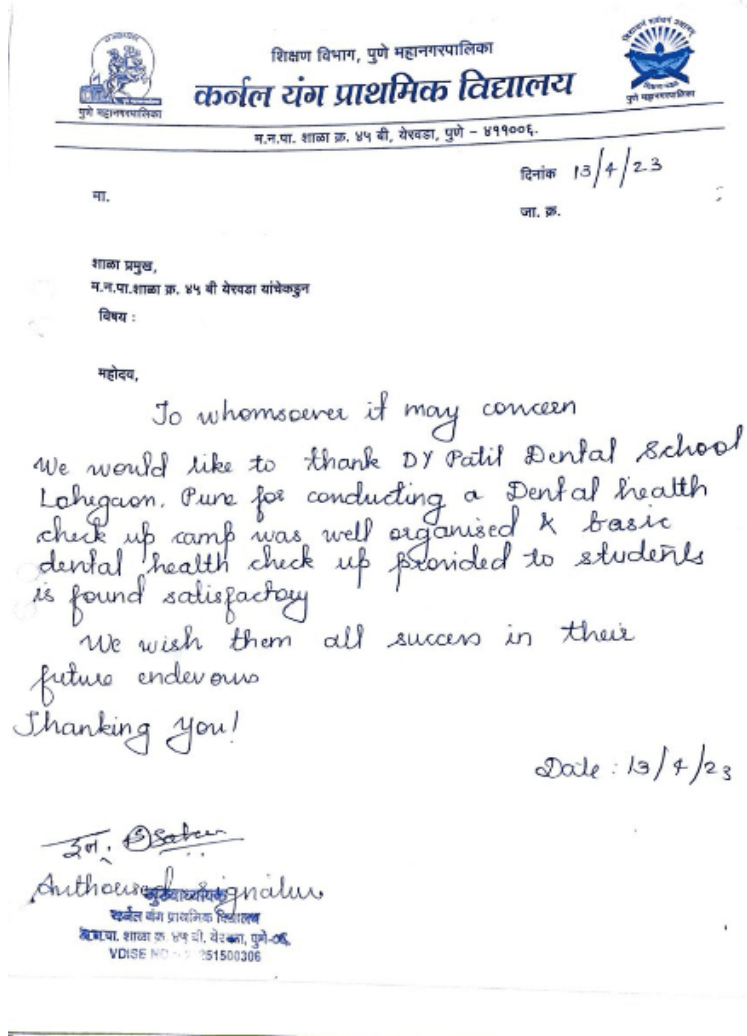 शिक्षण विभाग, पुणे महानगरपालिका
कर्नल यंग प्राथमिक विद्यालय
पुणे महानगरपालिका
पुणे महानगरपालिका
म.न.पा. शाळा क्र. ४५ बी, येरवडा, पुणे - ४११००६.
दिनांक 13/4/23
मा.
जा. क्र.
शाळा प्रमुख,
म.न.पा.शाळा क्र. ४५ बी येरवडा यांचेकडुन
विषय :
महोदय,
To whomsoever it may concern
We would like to thank DY Patil Dental School
Lohegaon. Pune for conducting a Dental health
check up camp was well organised & basic
dental health check up provided to students
is found satisfactory
We wish them all success in their
future endevours
Thanking You!
Date : 13/4/23
Authorised Signature
मुख्याध्यापक
कर्नल यंग प्राथमिक विद्यालय
म.न.पा. शाळा क्र. ४५ बी, येरवडा, पुणे-०६.
251500306